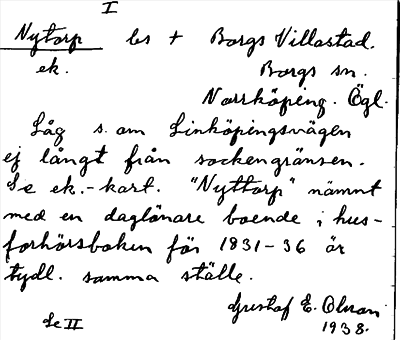 I
Nytorp les + Borgs Villastad.
ek. Borgs sn.
Norrköping. Ögl.
Låg s. om Linköpingsvägen
ej långt från sockengränsen.
Se ek.-kart. "Nyttorp" nämnt
med en daglönare boende i hus-
förhörsboken för 1831-36 är
tydl. samma ställe.
Gustaf E. Olsson
Se II 1938.